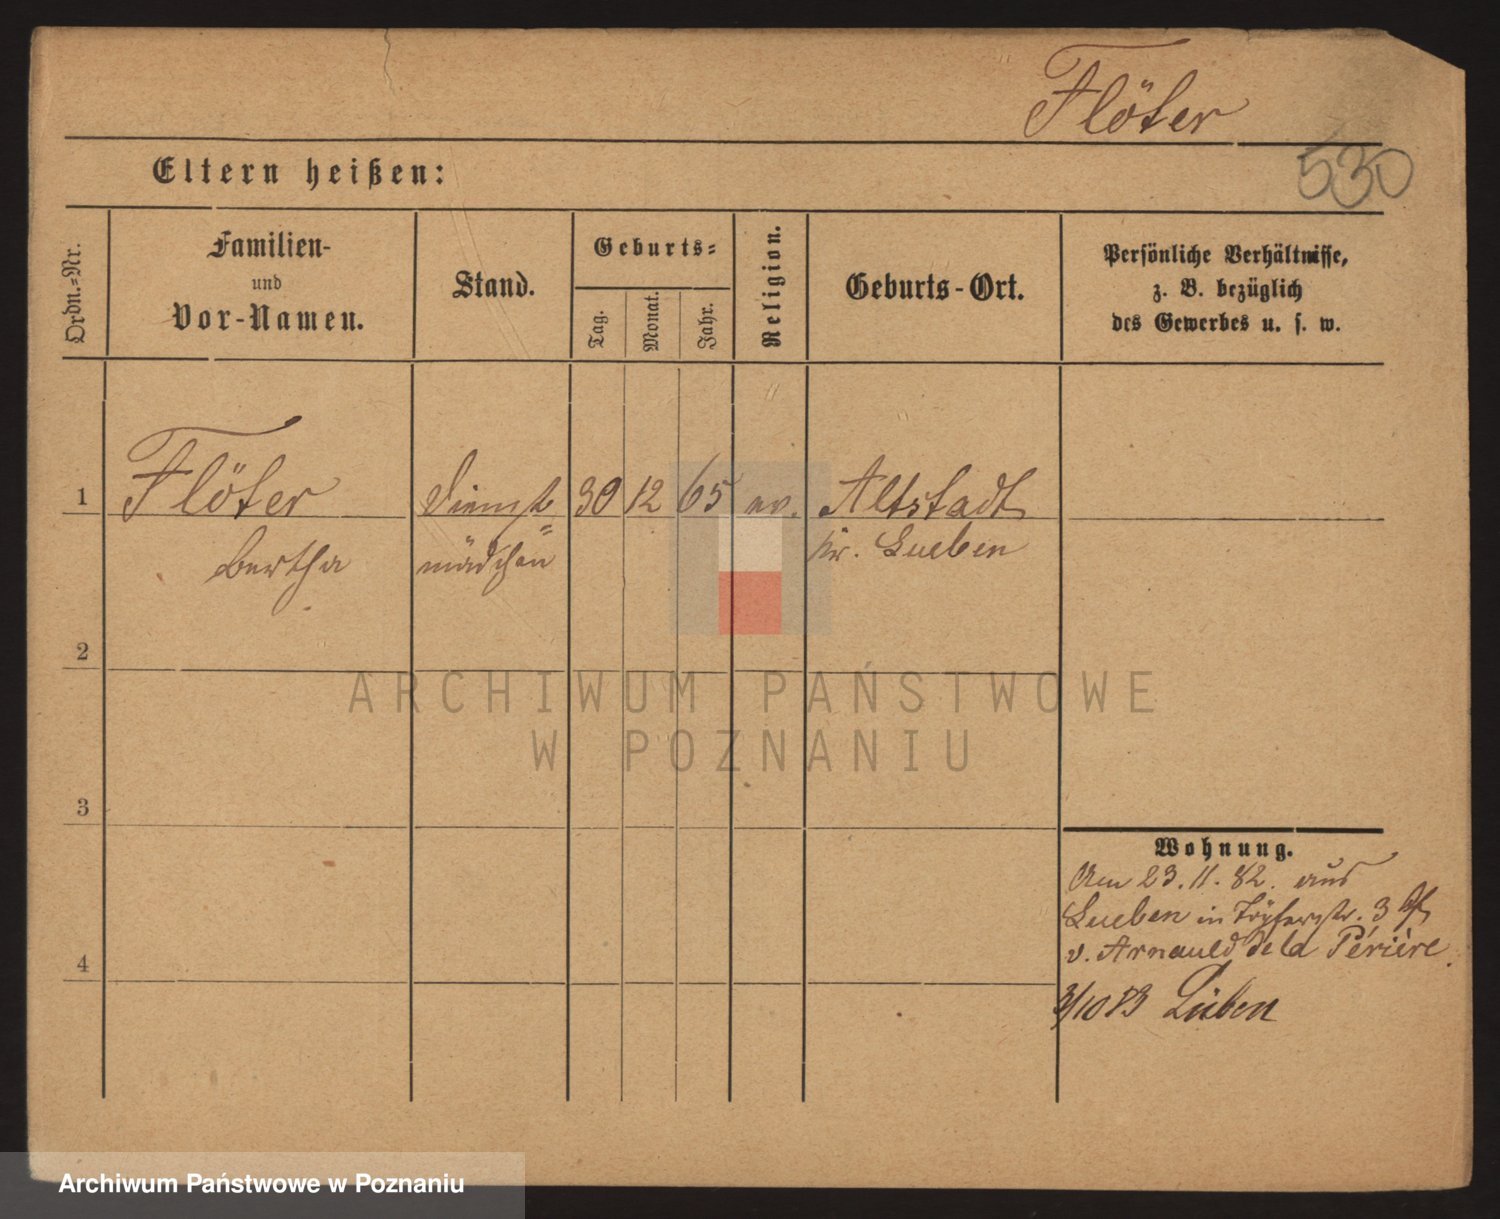 Flöter
530
Eltern heißen:
Ordn.=Nr.
Familien-
und
Vor-Namen.
Stand.
Geburts=
Tag.
Monat.
Jahr.
Religion.
Geburts-Ort.
Persönliche Verhältnisse,
z. B. bezüglich
des Gewerbes u. s. w.
1
Flöter
Bertha
Dienst=
mädchen
30
12
65
ev.
Altstadt
Kr. Lueben
2
3
4
Wohnung.
Am 23.11.82. aus
Lueben in Töpferstr. 3
v. Arnauld de la Périère.
3/10 83 Lüben
ARCHIWUM PAŃSTWOWE
W POZNANIU
Archiwum Państwowe w Poznaniu